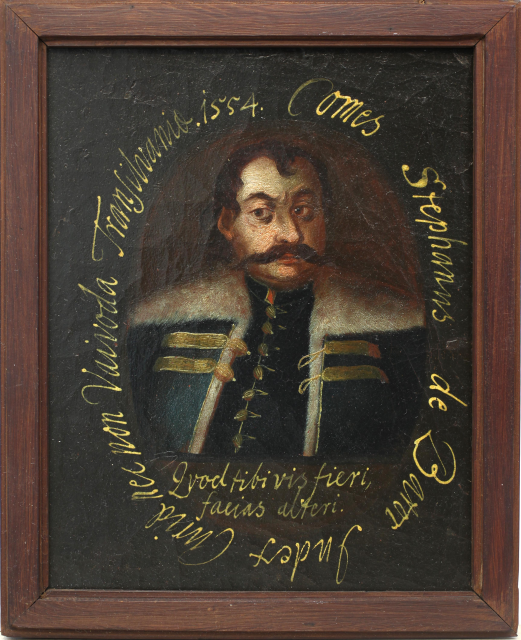 Comes Stephanus de Bator Judex Curiæ nec non Vaivoda Transilvaniæ. 1554.
Qvod tibi vis fieri,
facias alteri.